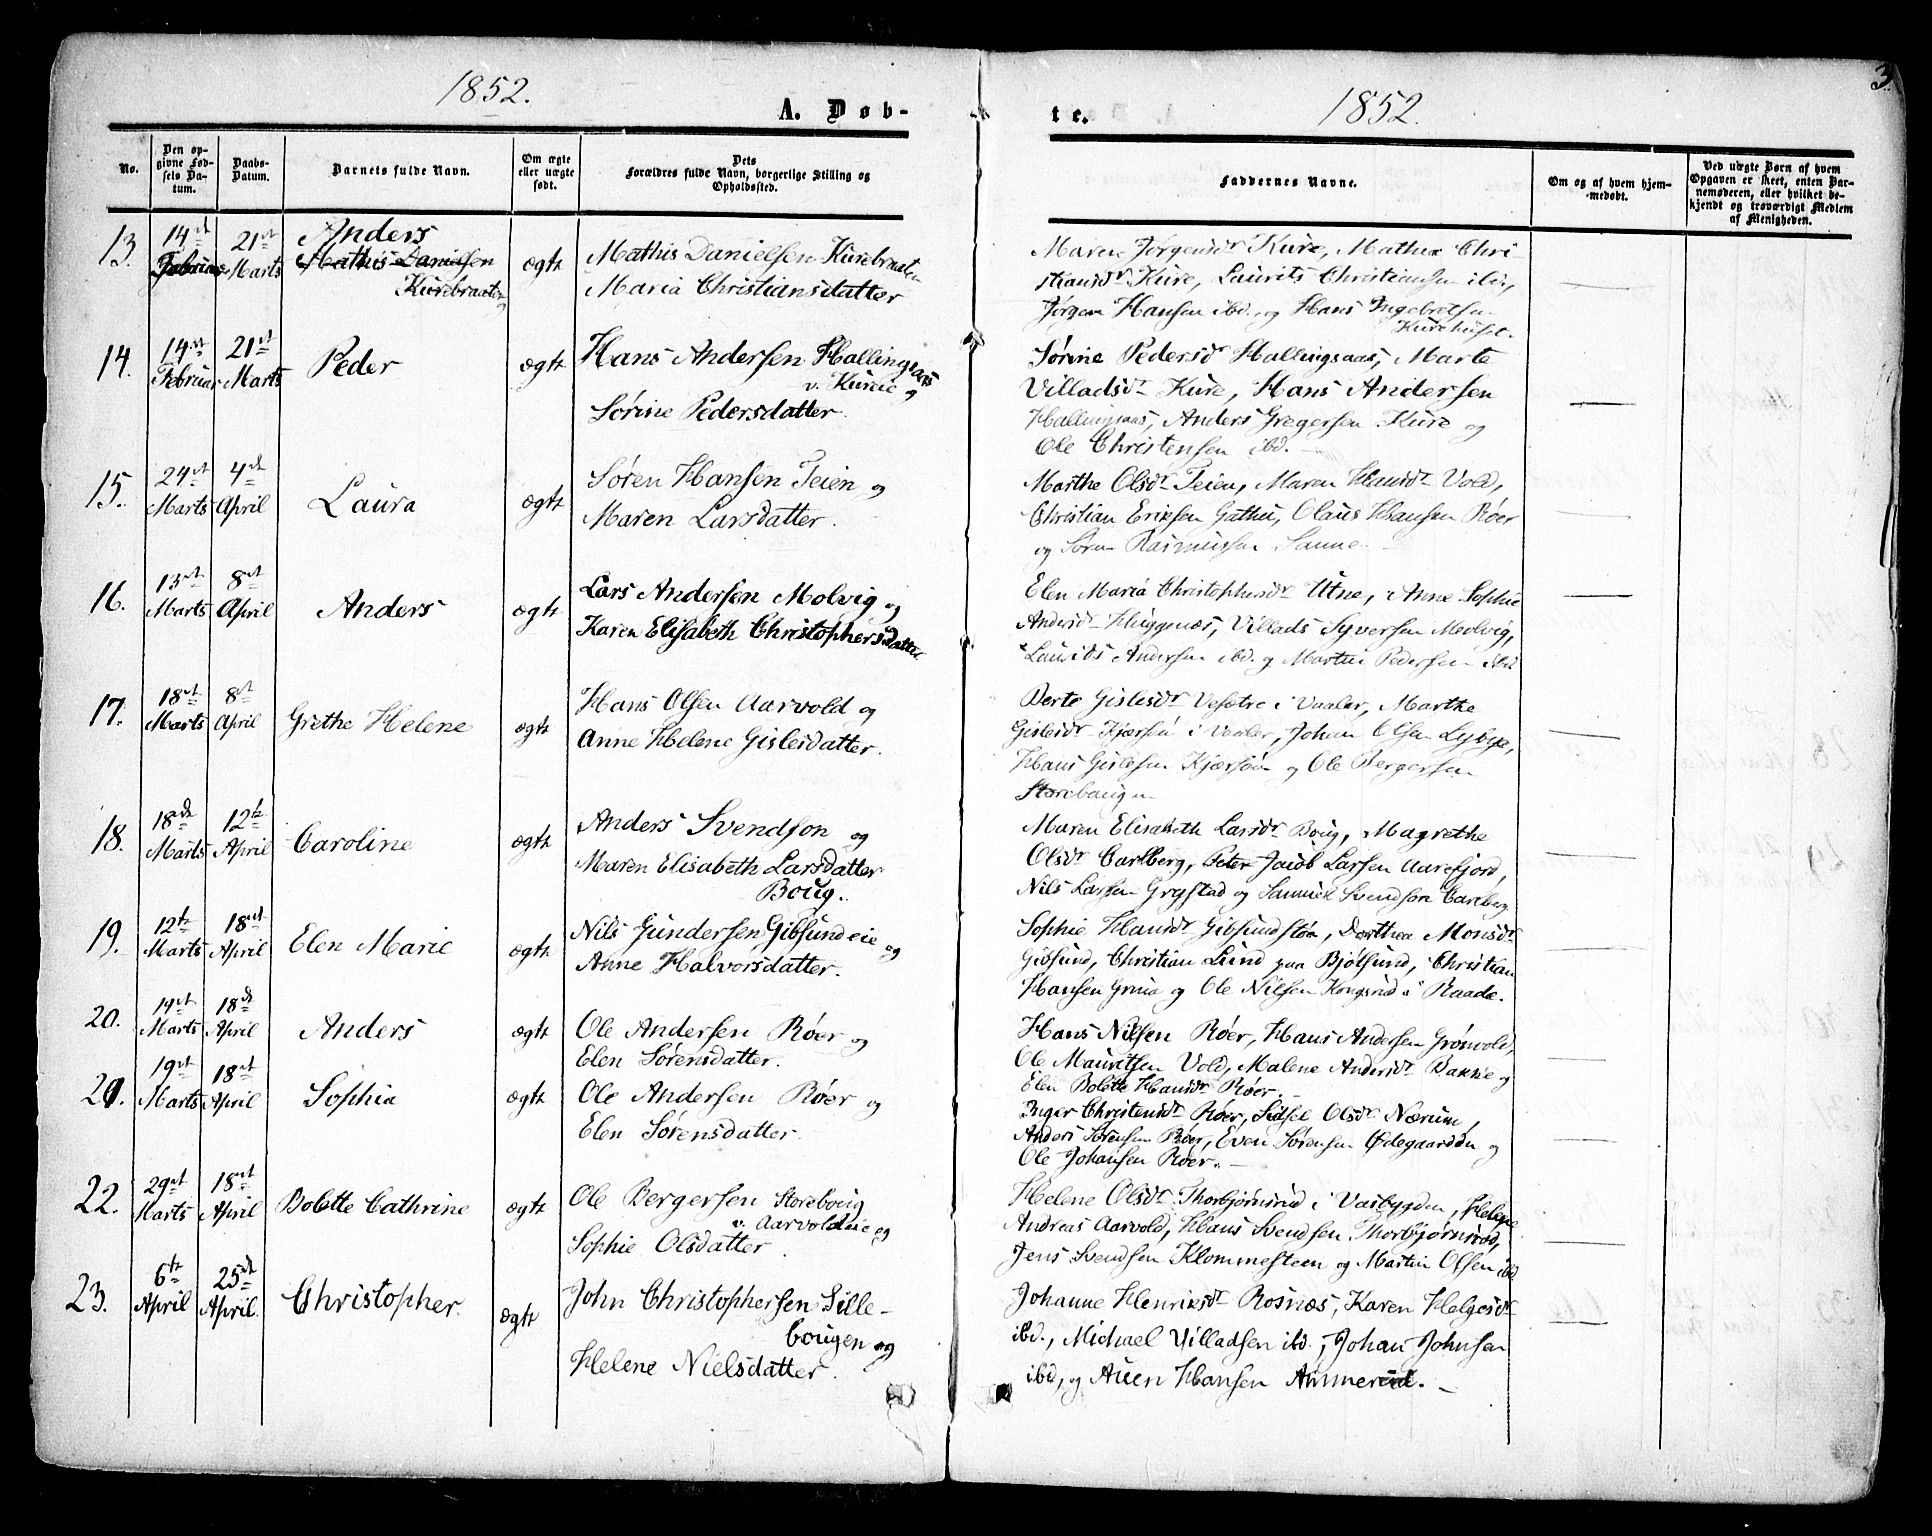 1852.
A. Døb-
No.
Den opgivne Fødsels Datum.
Daabs-Datum.
Barnets fulde Navn.
Om ægte eller uægte født.
Dets Forældres fulde Navn, borgerlige Stilling og Opholdssted.
13.
14de Februar
21de Marts
Anders
Mathis Danielsen
Kurebraaten
ægte
Mathis Danielsen Kurebraaten
Maria Christiansdatter
14.
14de Februar
21de Marts
Peder
ægte
Hans Andersen Hallingsaas
v. Kureie og
Sørine Pedersdatter.
15.
24de Marts
4de April
Laura
ægte
Søren Hansen Teien og
Maren Larsdatter.
16.
13de Marts
8de April
Anders
ægte
Lars Andersen Molvig og
Karen Elisabeth Christophersdatter
17.
18de Marts
8de April
Grethe Helene
ægte
Hans Olsen Aarvold og
Anne Helene Gislesdatter.
18.
18de Marts
12te April
Caroline
ægte
Anders Svendsen og
Maren Elisabeth Larsdatter
Boug.
19.
12te Marts
18de April
Elen Marie
ægte
Nils Gundersen Gibsundeie og
Anne Halvorsdatter.
20.
19de Marts
18de April
Anders
ægte
Ole Andersen Røer og
Elen Sørensdatter.
21.
19de Marts
18de April
Sophia
ægte
Ole Andersen Røer og
Elen Sørensdatter.
22.
29de Marts
18de April
Bolette Cathrine
ægte
Ole Bergersen Storeboug
v. Aarvoldeie og
Sophie Olsdatter.
23.
6te April
25de April.
Christopher.
ægte
John Christophersen Sille-
bougen og
Helene Nielsdatter.
3.
te.
1852.
Faddernes Navne.
Om og af hvem hjem-
medøbt.
Ved uægte Børn af hvem
Opgaven er skeet, enten Bar-
nemoderen, eller hvilket be-
kjendt og troværdigt Medlem
af Menigheden.
Maren Jørgensdr Kure, Mathea Chri-
stiansdr Kure, Laurits Christiansen ibd.,
Jørgen Hansen ibd. og Hans Ingebretsen
Kurehuset.
Sørine Pedersdr Hallingsaas, Marte
Villadsdr Kure, Hans Andersen
Hallingsaas, Anders Gregersen Kure og
Ole Christensen ibd.
Marthe Olsdr Teien, Maren Hansdr Vold,
Christian Eriksen Gathu, Olaus Hansen Røer
og Søren Rasmussen Sanne.
Elen Maria Christophersdr Utne, Anne Sophie
Andersdr Huggenæs, Villads Syversen Molvig,
Laurids Andersen ibd. og Martin Pedersen ibd
Berte Gislesdr Vesætre i Vaaler, Marthe
Gislesdr Kjærsøn i Vaaler, Johan Olsen Lybye,
Hans Gislesen Kjærsøn og Ole Bergersen
Storebougen
Maren Elisabeth Larsdr Boug, Magrethe
Olsdr Carlberg, Peter Jacob Larsen Aarefjord,
Nils Larsen Grystad og Samuel Svendsen Carlberg.
Sophie Hansdr Gibsundstøn, Dorthea Monsdr
Gibsund, Christian Lund paa Bjølsund, Christian
Hansen Grua og Ole Nilsen Kongsrud i Raade.
Hans Nilsen Røer, Hans Andersen Grønvold,
Ole Mauritsen Vold, Malene Andersdr Bakke og
Elen Bolette Hansdr Røer.
Inger Christensdr Røer, Sidsel Olsdr Nærum,
Anders Sørensen Røer, Even Sørensen Ødegaarden og
Ole Johansen Røer.
Helene Olsdr Thorbjørnsrød i Vasbygden, Helene
Andreas Aarvold, Hans Svendsen Thorbjørnsrød,
Jens Svendsen Klommesteen og Martin Olsen ibd.
Johanne Henriksdr Rosnæs, Karen Helgesdr
ibd., Michael Villadsen ibd., Johan Johnsen
ibd, og Auen Hansen Ammerød.